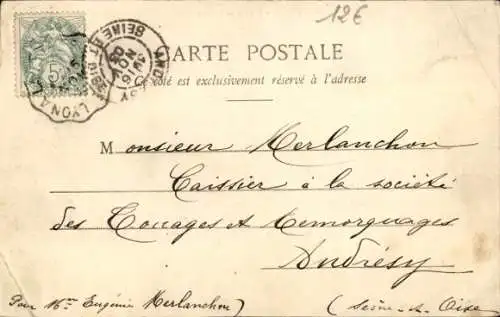 12€
CARTE POSTALE
Ce côté est exclusivement réservé à l'adresse
5
LYON A
ANDRESY
SEINE ET OISE
Monsieur Merlanchon
Caissier à la société
des Touages et Remorquages
Andrésy
Pour Mme Eugénie Merlanchon
(Seine-&-Oise